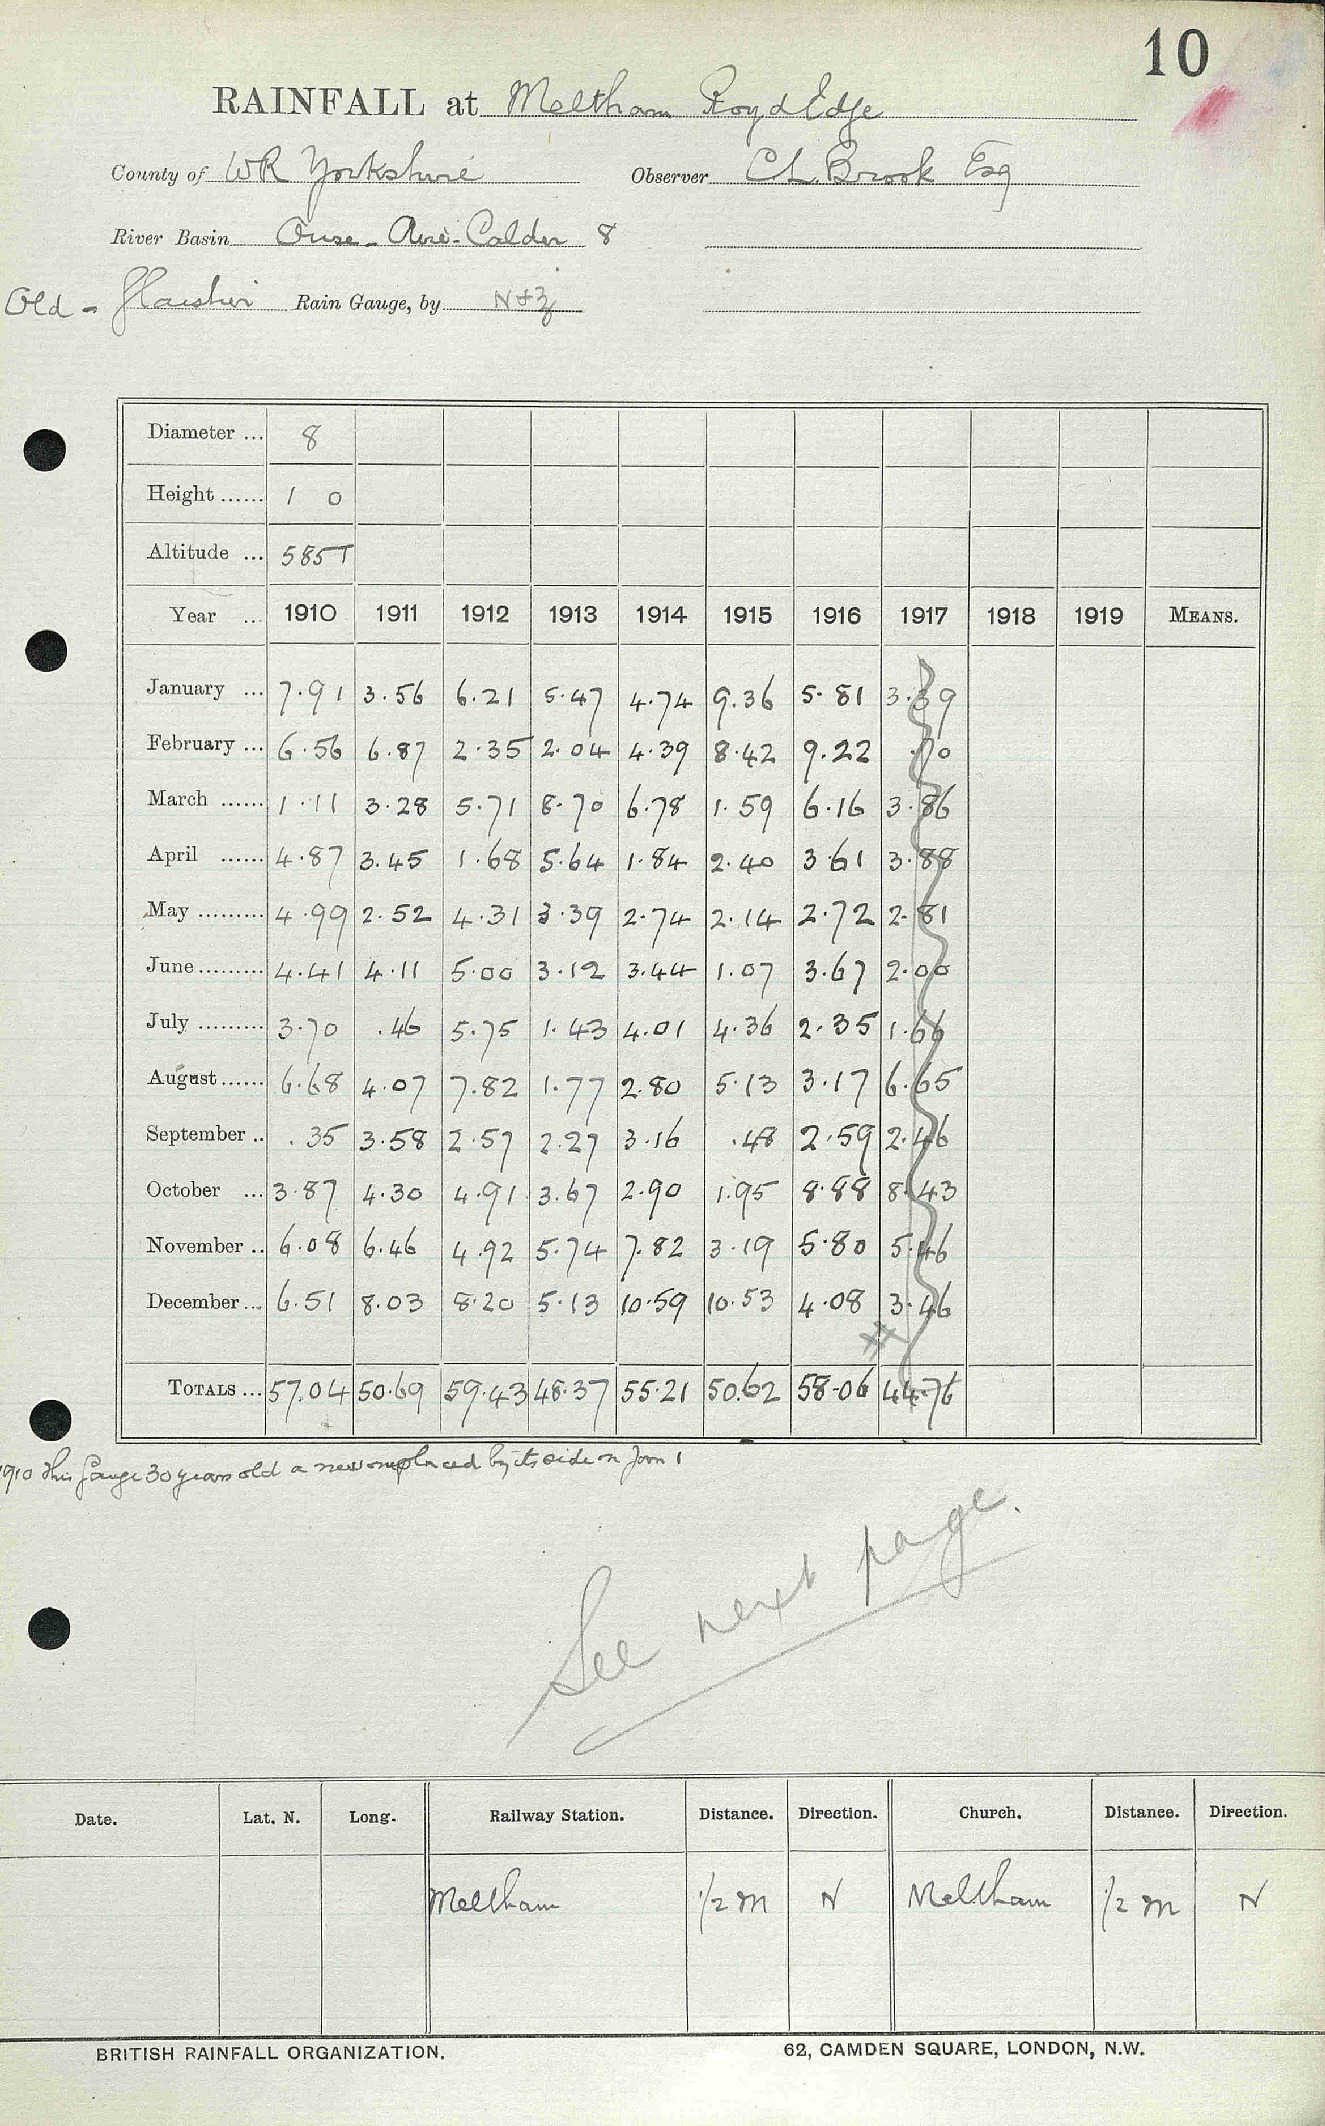 10
RAINFALL at Meltham Royd Edge
County of WR Yorkshire Observer C L. Brook Esq
River Basin Ouse - Aire - Calder 8
Old - Glaisher Rain Gauge, by N & Z
Diameter ... 8
Height ...... 1 0
Altitude ... 585T
Year ... 1910 1911 1912 1913 1914 1915 1916 1917 1918 1919 MEANS.
January ... 7.91 3.56 6.21 5.47 4.74 9.36 5.81 3.39
February ... 6.56 6.87 2.35 2.04 4.39 8.42 9.22 .70
March ...... 1.11 3.28 5.71 8.70 6.78 1.59 6.16 3.86
April ...... 4.87 3.45 1.68 5.64 1.84 2.40 3.61 3.88
May ......... 4.99 2.52 4.31 3.39 2.74 2.14 2.72 2.81
June ......... 4.41 4.11 5.00 3.12 3.44 1.07 3.67 2.00
July ......... 3.70 .46 5.75 1.43 4.01 4.36 2.35 1.66
August ...... 6.68 4.07 7.82 1.77 2.80 5.13 3.17 6.65
September .. .35 3.58 2.57 2.27 3.16 .48 2.59 2.46
October ... 3.87 4.30 4.91 3.67 2.90 1.95 8.88 8.43
November .. 6.08 6.46 4.92 5.74 7.82 3.19 5.80 5.46
December ... 6.51 8.03 8.20 5.13 10.59 10.53 4.08 3.46
TOTALS ... 57.04 50.69 59.43 48.37 55.21 50.62 58.06 44.76
1910 This gauge 30 years old a new one placed by its side on Jan 1
See next page.
Date. Lat. N. Long. Railway Station. Distance. Direction. Church. Distance. Direction.
Meltham 1/2 m N Meltham 1/2 m N
BRITISH RAINFALL ORGANIZATION. 62, CAMDEN SQUARE, LONDON, N.W.